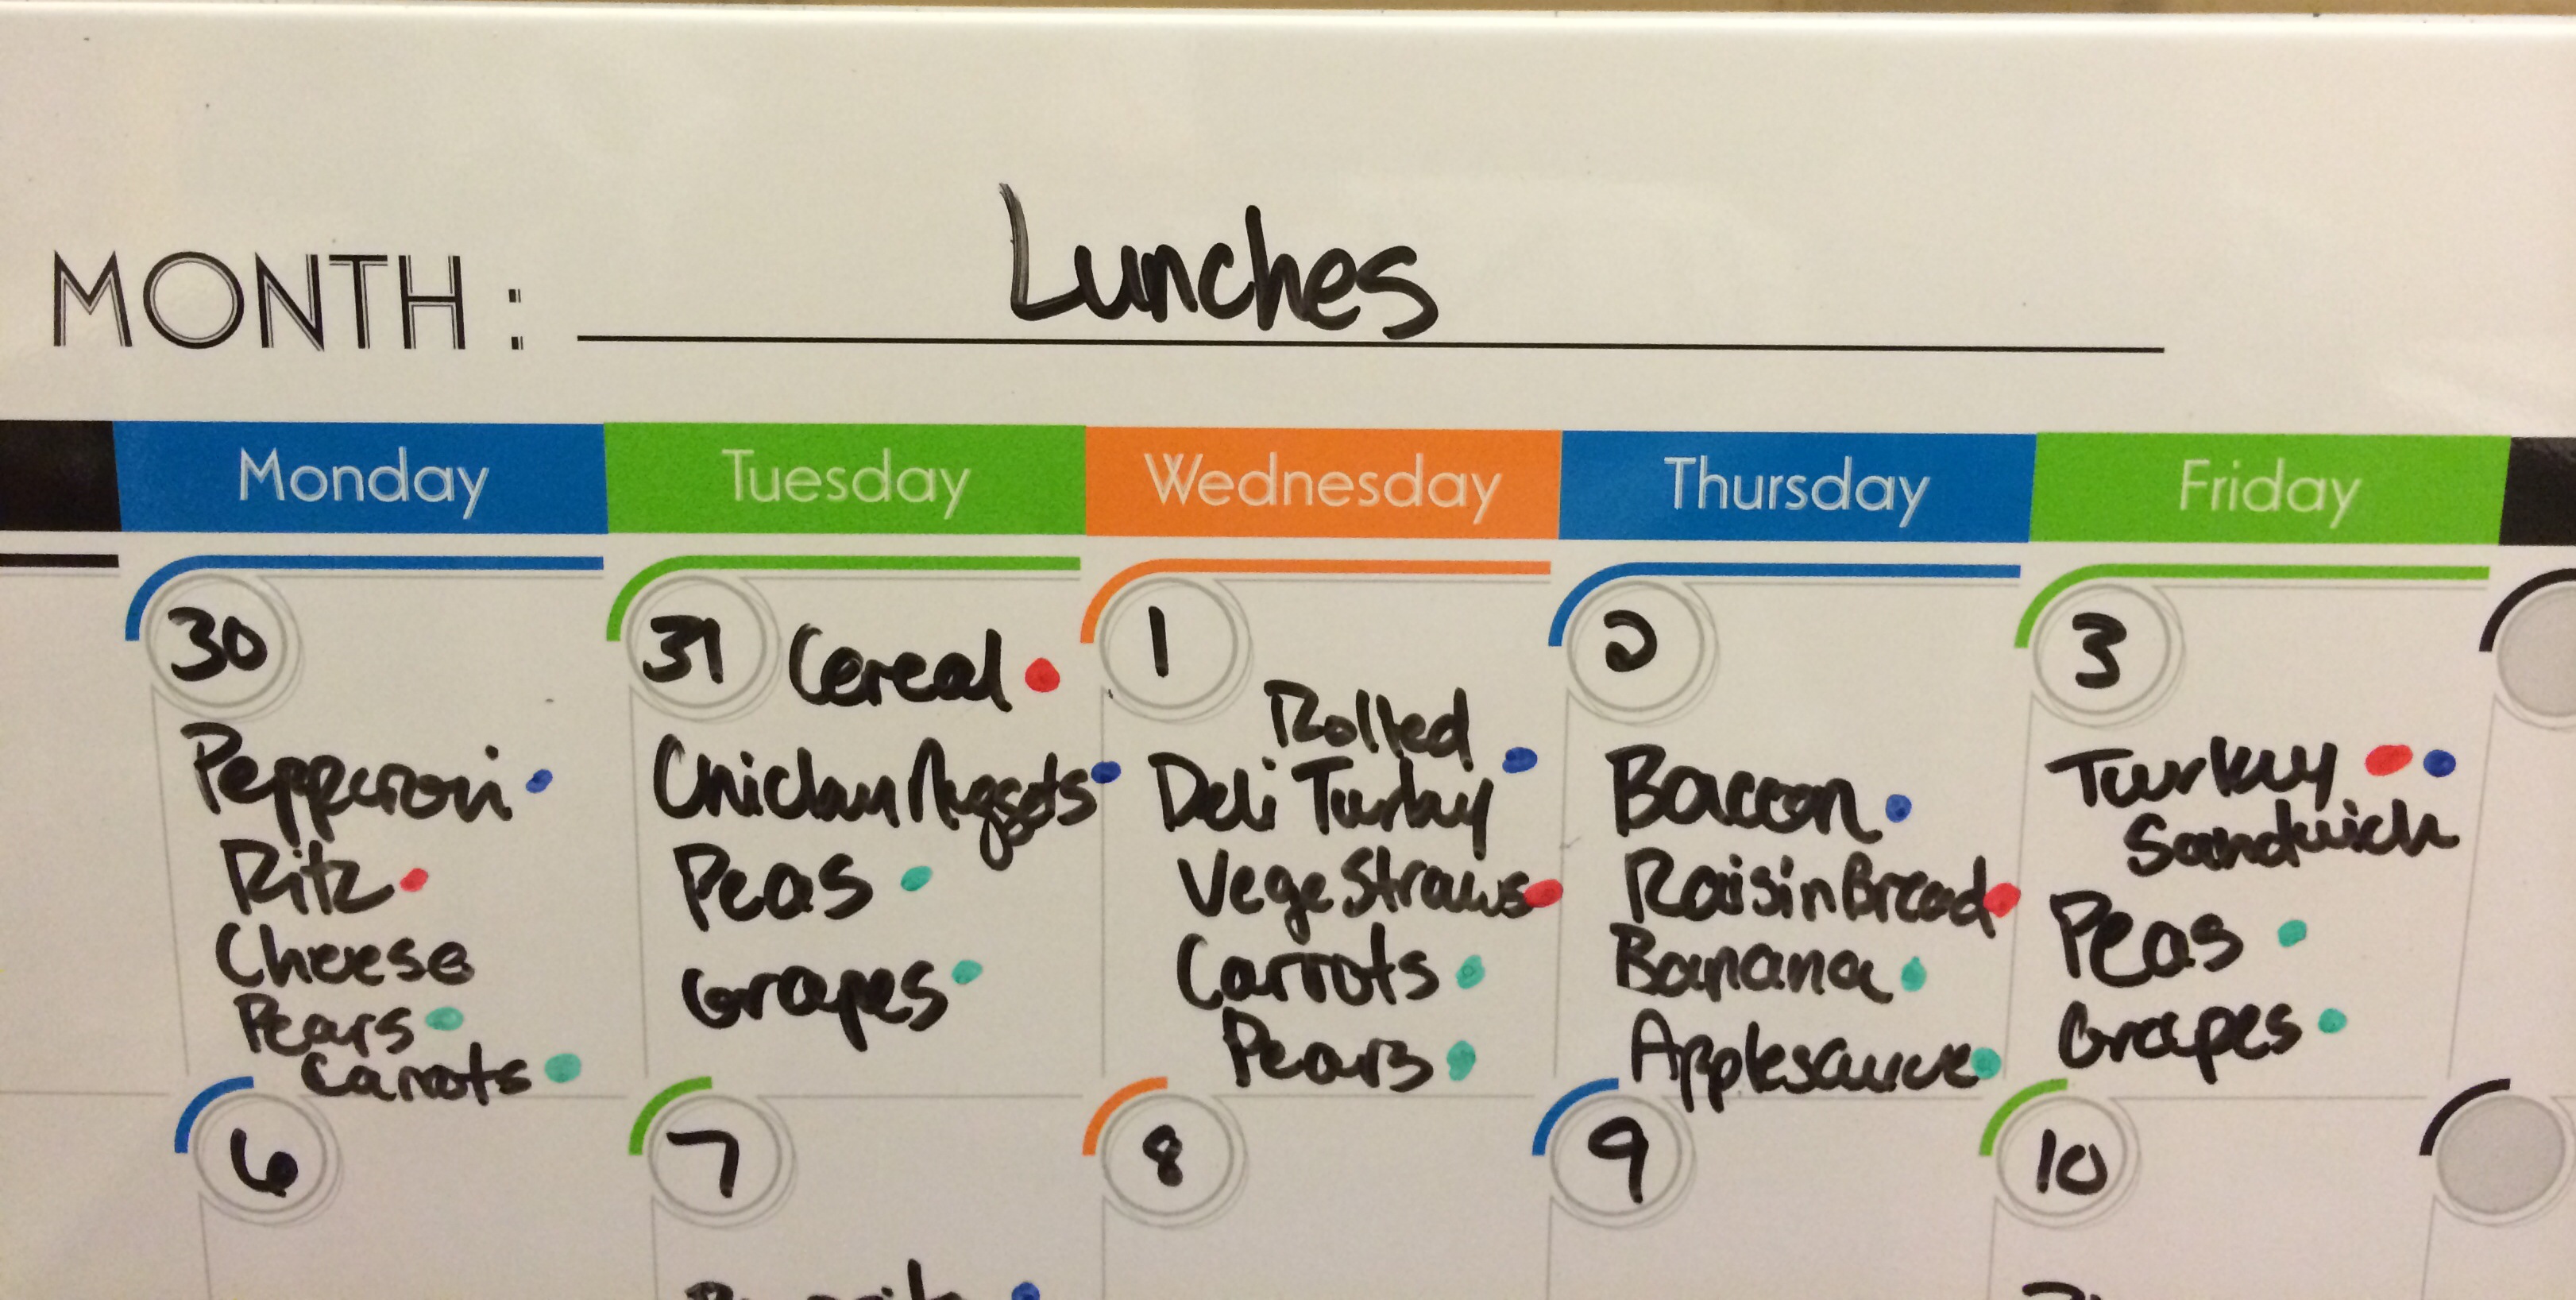 MONTH: Lunches
Monday Tuesday Wednesday Thursday Friday
30
Pepperoni
Ritz
Cheese
Pears
Carrots
31 Cereal
Chicken Nuggets
Peas
Grapes
1
Rolled
Deli Turkey
Vege Straws
Carrots
Pears
2
Bacon
Raisin Bread
Banana
Applesauce
3
Turkey
Sandwich
Peas
Grapes
6
7
8
9
10